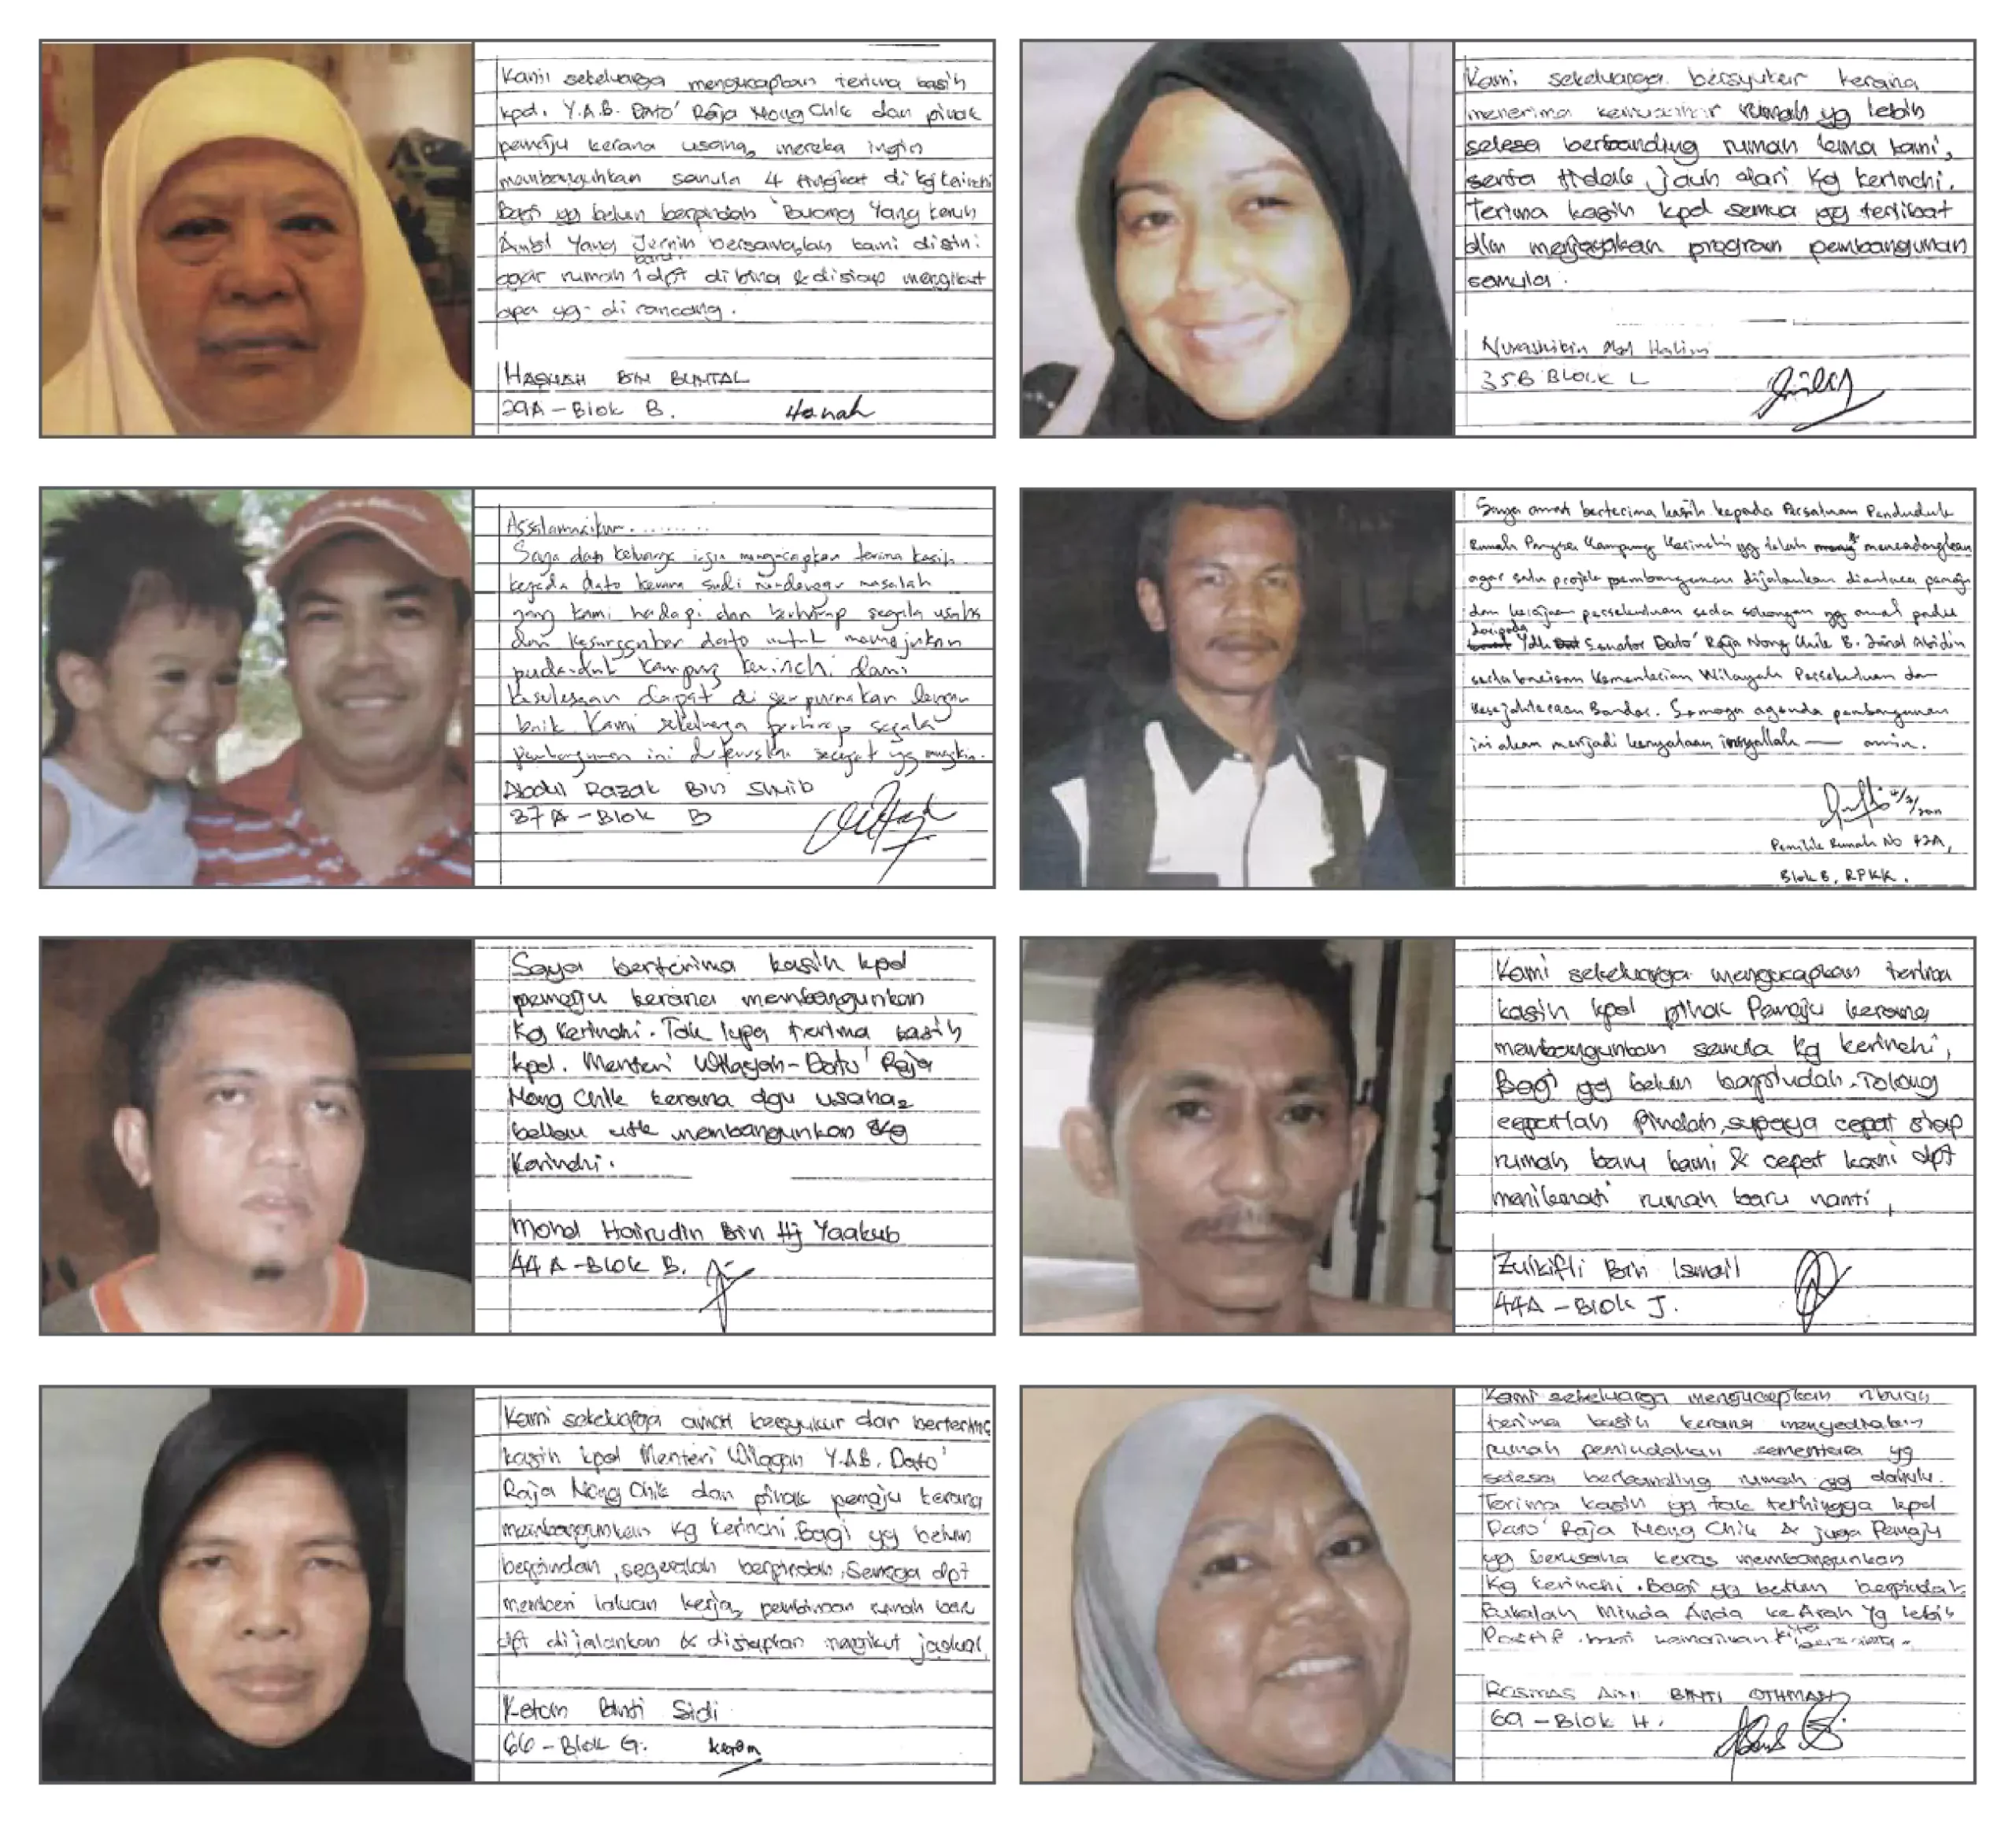 Kami sekeluarga mengucapkan terima kasih
kpd. Y.A.B. Dato' Raja Nong Chik dan pihak
pemaju kerana usaha2 mereka ingin
membangunkan samula 4 tingkat di kg kerinchi
Bagi yg belum berpindah 'Buang Yang keruh
Ambil Yang Jernih' bersamalah kami disini
agar rumah baru dpt di bina & disiap mengikut
apa yg di rancang.
BIN BUNTAL
29A - Blok B. Hanah
Kami sekeluarga bersyukur kerana
menerima rumah yg lebih
selesa berbanding rumah lama kami,
serta tidak jauh dari Kg kerinchi.
Terima kasih kpd semua yg terlibat
dlm menjayakan program pembangunan
samula.
Halim
35B Block L
Assalamuaikum.........
Saya dan keluarga ingin mengucapkan terima kasih
kepada dato kerana sudi mendengar masalah
yang kami hadapi dan berharap segala usaha
dan kesungguhan dato untuk memajukan
penduduk kampung kerinchi dami
keselesaan dapat di sempurnakan dengan
baik. Kami sekeluarga berharap segala
pembangunan ini diteruskan secepat yg mungkin.
Abdul Razak Bin
37A - Blok B
Saya amat berterima kasih kepada Persatuan Penduduk
Rumah Pangsa Kampung Kerinchi yg telah mencadangkan
agar satu projek pembangunan dijalankan diantara pemaju
dan kerajaan persekutuan serta sokongan yg amat padu
daripada Senator Dato' Raja Nong Chik B. Zainal Abidin
serta barisan Kementerian Wilayah Persekutuan dan
Kesejahteraan Bandar. Semoga agenda pembangunan
ini akan menjadi kenyataan insyallah — amin.
Pemilik Rumah No 42A,
Blok B, RPKK.
Saya berterima kasih kpd
pemaju kerana membangunkan
Kg Kerinchi. Tak lupa terima kasih
kpd. Menteri Wilayah - Dato' Raja
Nong Chik kerana dgn usaha2
beliau utk membangunkan Kg
Kerinchi.
Mohd Hairudin Bin Hj Yaakub
44A - Blok B.
Kami sekeluarga mengucapkan terima
kasih kpd pihak Pemaju kerana
membangunkan samula Kg kerinchi,
Bagi yg belum berpindah. Tolong
cepatlah Pindah, supaya cepat siap
rumah baru kami & cepat kami dpt
menikmati rumah baru nanti,
Zulkifli Bin Ismail
44A - Blok J.
Kami sekeluarga amat bersyukur dan berterima
kasih kpd Menteri Wilayah Y.A.B. Dato'
Raja Nong Chik dan pihak pemaju kerana
membangunkan Kg Kerinchi. Bagi yg belum
berpindah, segeralah berpindah. Semoga dpt
memberi laluan kerja2 pembinaan rumah baru
dpt dijalankan & disiapkan mengikut jadual,
Ketom Binti Sidi
66 - Blok G.
Kami sekeluarga mengucapkan ribuan
terima kasih kerana menyediakan
rumah pemindahan sementara yg
selesa berbanding rumah yg dahulu.
Terima kasih yg tak terhingga kpd
Dato' Raja Nong Chik & juga Pemaju
yg berusaha keras membangunkan
Kg Kerinchi. Bagi yg belum berpindah
Bukalah Minda Anda ke Arah Yg lebih
Positif kita
BINTI OTHMAN
69 - Blok H.